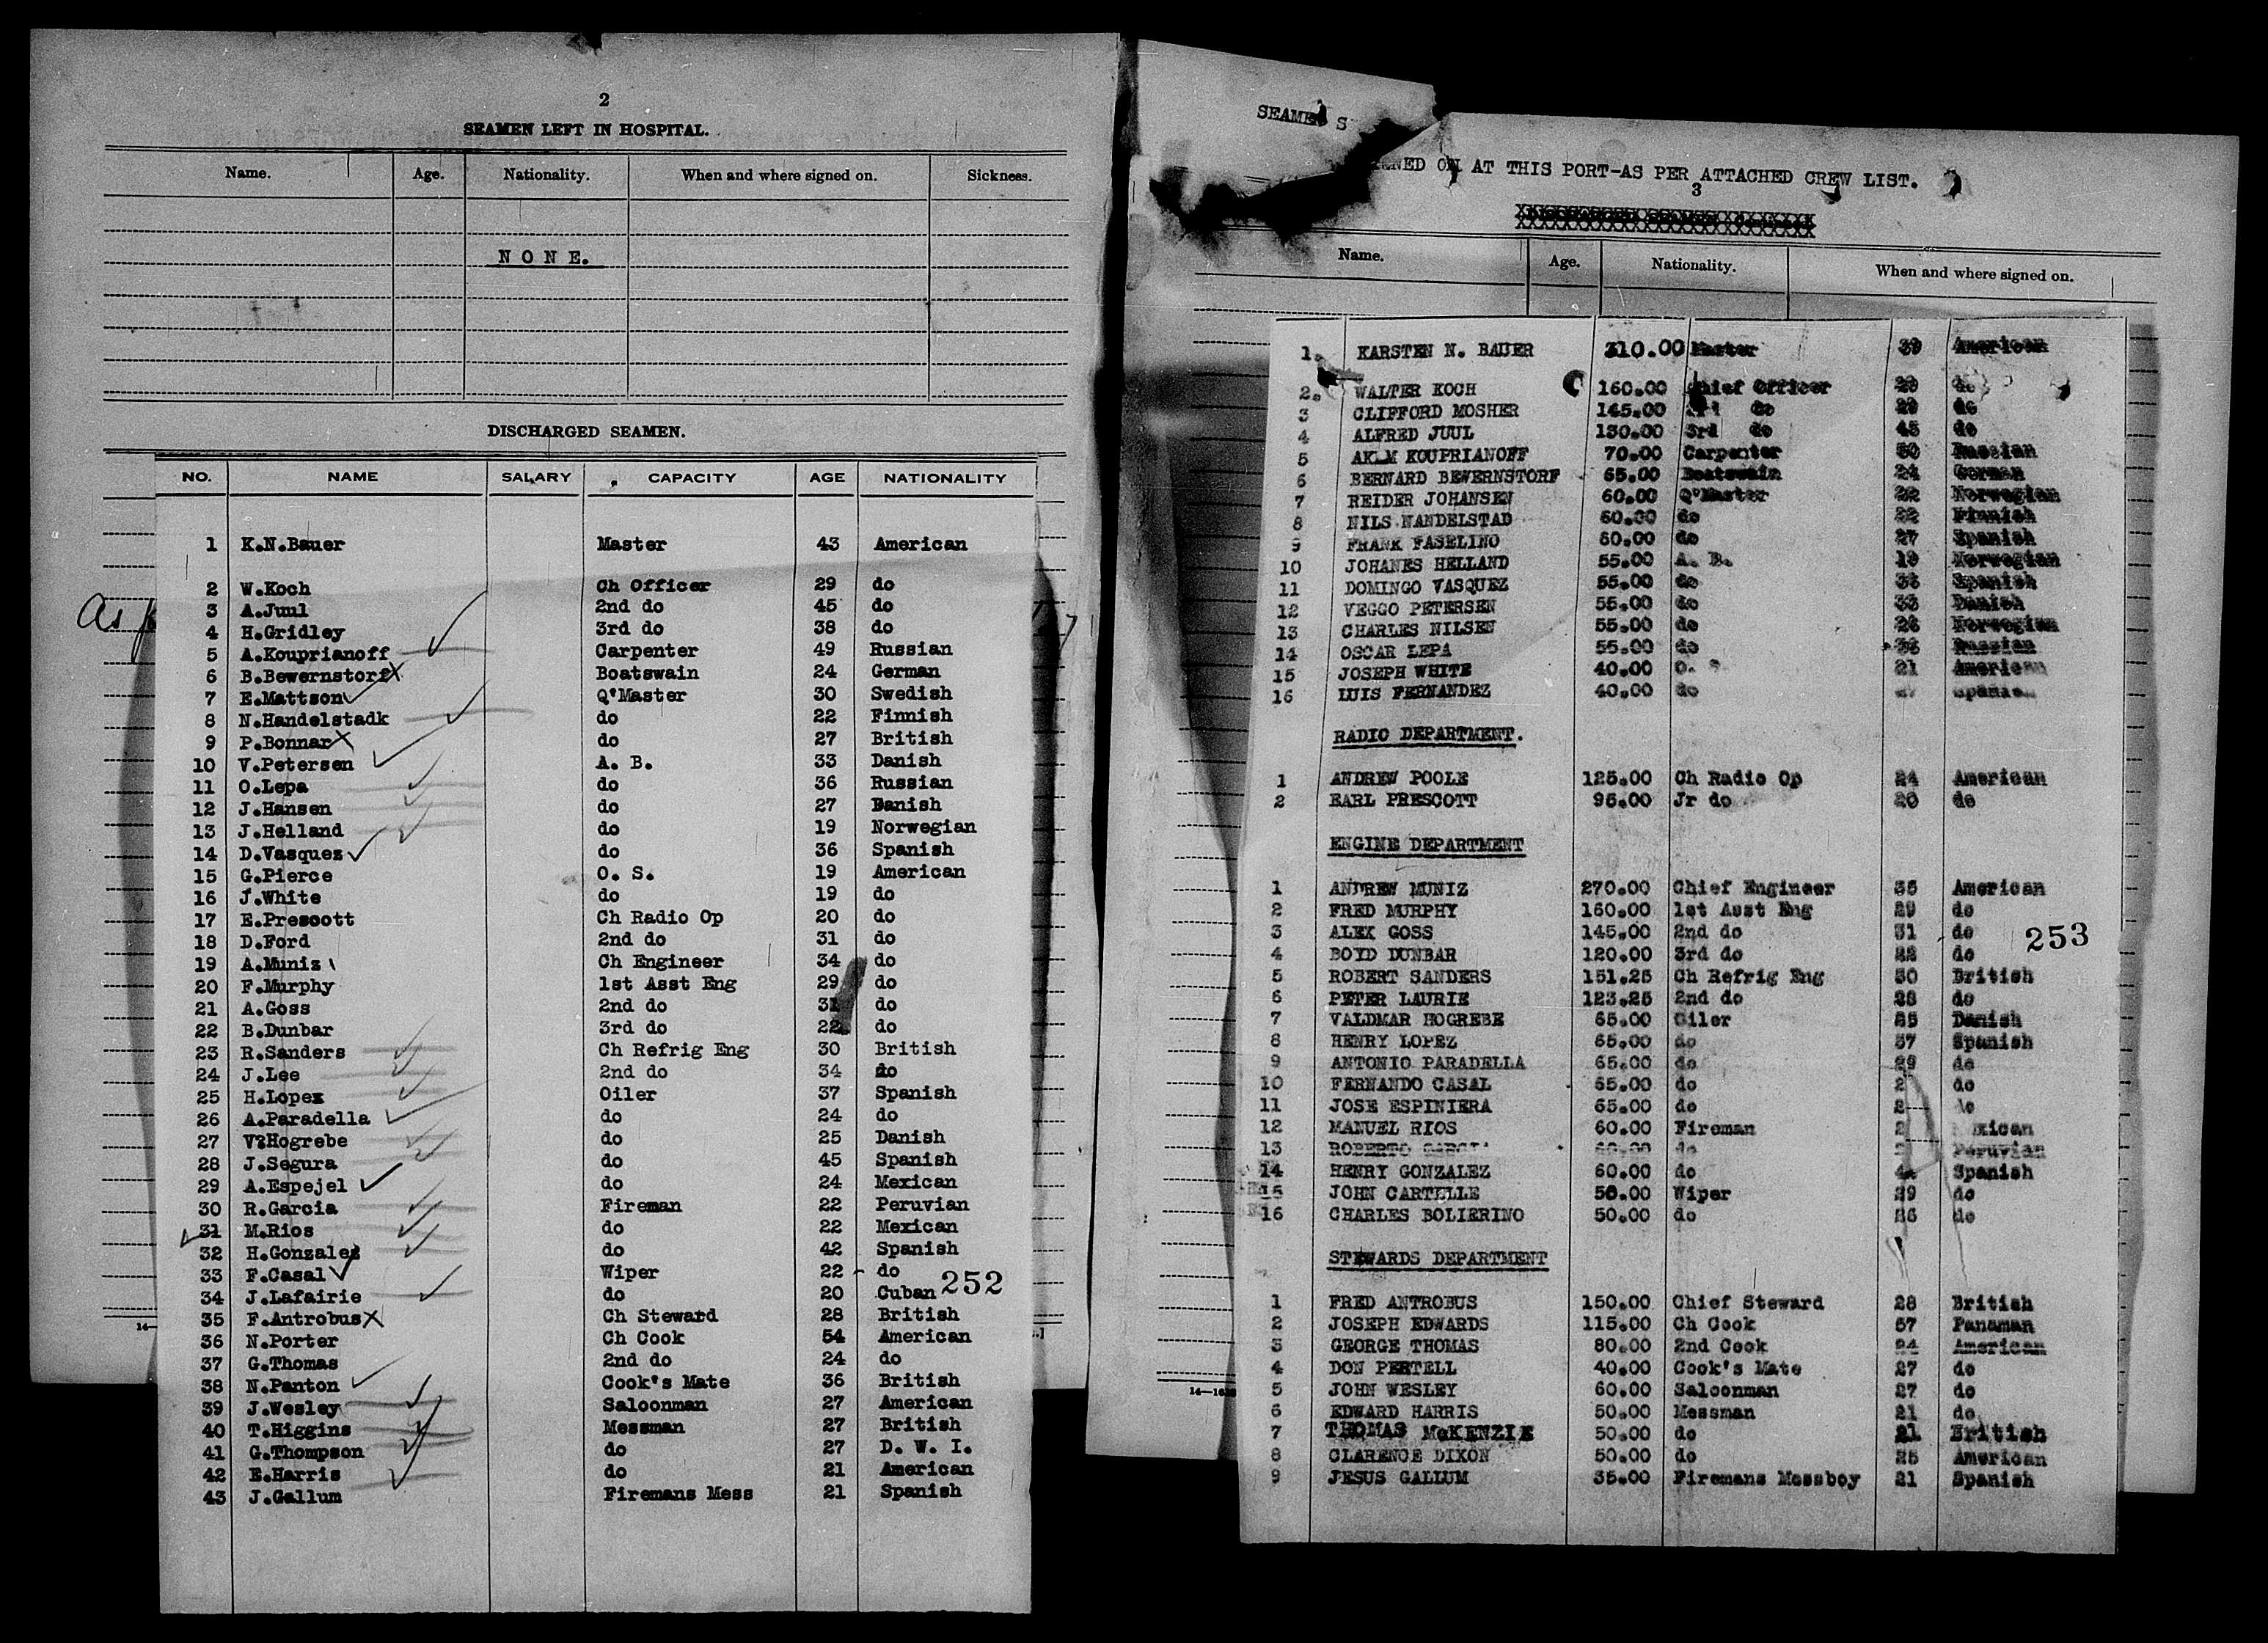 2
SEAMEN LEFT IN HOSPITAL.
Name. Age. Nationality. When and where signed on. Sickness.
N O N E.
DISCHARGED SEAMEN.
NO. NAME SALARY CAPACITY AGE NATIONALITY
1 K.N.Bauer Master 43 American
2 W.Koch Ch Officer 29 do
3 A.Juul 2nd do 45 do
4 H.Gridley 3rd do 38 do
5 A.Kouprianoff Carpenter 49 Russian
6 B.Bewernstorf Boatswain 24 German
7 E.Mattson Q'Master 30 Swedish
8 N.Handelstadk do 22 Finnish
9 P.Bonnar do 27 British
10 V.Petersen A. B. 33 Danish
11 O.Lepa do 36 Russian
12 J.Hansen do 27 Danish
13 J.Helland do 19 Norwegian
14 D.Vasquez do 36 Spanish
15 G.Pierce O. S. 19 American
16 J.White do 19 do
17 E.Prescott Ch Radio Op 20 do
18 D.Ford 2nd do 31 do
19 A.Muniz Ch Engineer 34 do
20 F.Murphy 1st Asst Eng 29 do
21 A.Goss 2nd do 31 do
22 B.Dunbar 3rd do 22 do
23 R.Sanders Ch Refrig Eng 30 British
24 J.Lee 2nd do 34 do
25 H.Lopez Oiler 37 Spanish
26 A.Paradella do 24 do
27 V?Hogrebe do 25 Danish
28 J.Segura do 45 Spanish
29 A.Espejel do 24 Mexican
30 R.Garcia Fireman 22 Peruvian
31 M.Rios do 22 Mexican
32 H.Gonzalez do 42 Spanish
33 F.Casal Wiper 22 do
34 J.Lafairie do 20 Cuban
252
35 F.Antrobus Ch Steward 28 British
36 N.Porter Ch Cook 54 American
37 G.Thomas 2nd do 24 do
38 N.Panton Cook's Mate 36 British
39 J.Wesley Saloonman 27 American
40 T.Higgins Messman 27 British
41 G.Thompson do 27 D. W. I.
42 E.Harris do 21 American
43 J.Gallum Firemans Mess 21 Spanish
As
14—
SEAMEN S
NED ON AT THIS PORT-AS PER ATTACHED CREW LIST.
3
Name. Age. Nationality. When and where signed on.
1. KARSTEN N. BAUER 310.00 Master 39 American
2. WALTER KOCH 160.00 Chief Officer 29 do
3 CLIFFORD MOSHER 145.00 do 29 do
4 ALFRED JUUL 130.00 3rd do 45 do
5 KOUPRIANOFF 70.00 Carpenter 50 Russian
6 BERNARD BEWERNSTORF 65.00 Boatswain 24 German
7 REIDER JOHANSEN 60.00 Q'Master 22 Norwegian
8 NILS HANDELSTAD 60.00 do 22 Finnish
9 FRANK FASELINO 60.00 do 27 Spanish
10 JOHANES HELLAND 55.00 A. B. 19 Norwegian
11 DOMINGO VASQUEZ 55.00 do 36 Spanish
12 VEGGO PETERSEN 55.00 do 33 Danish
13 CHARLES NILSEN 55.00 do 26 Norwegian
14 OSCAR LEPA 55.00 do 36 Russian
15 JOSEPH WHITE 40.00 O. 21 American
16 LUIS FERNANDEZ 40.00 do
RADIO DEPARTMENT.
1 ANDREW POOLE 125.00 Ch Radio Op 24 American
2 EARL PRESCOTT 95.00 Jr do 20 do
ENGINE DEPARTMENT
1 ANDREW MUNIZ 270.00 Chief Engineer 35 American
2 FRED MURPHY 160.00 1st Asst Eng 29 do
3 ALEX GOSS 145.00 2nd do 31 do
253
4 BOYD DUNBAR 120.00 3rd do 22 do
5 ROBERT SANDERS 151.25 Ch Refrig Eng 30 British
6 PETER LAURIE 123.25 2nd do 28 do
7 VALDMAR HOGREBE 65.00 Oiler 25 Danish
8 HENRY LOPEZ 65.00 do 37 Spanish
9 ANTONIO PARADELLA 65.00 do 29 do
10 FERNANDO CASAL 65.00 do do
11 JOSE ESPINIERA 65.00 do do
12 MANUEL RIOS 60.00 Fireman
13 ROBERTO 60.00 do Peruvian
14 HENRY GONZALEZ 60.00 do Spanish
15 JOHN CARTELLE 50.00 Wiper 29 do
16 CHARLES BOLIERINO 50.00 do 26 do
STEWARDS DEPARTMENT
1 FRED ANTROBUS 150.00 Chief Steward 28 British
2 JOSEPH EDWARDS 115.00 Ch Cook 57 Panaman
3 GEORGE THOMAS 80.00 2nd Cook 24 American
4 DON PERTELL 40.00 Cook's Mate 27 do
5 JOHN WESLEY 60.00 Saloonman 27 do
6 EDWARD HARRIS 50.00 Messman 21 do
7 THOMAS McKENZIE 50.00 do 21 British
8 CLARENCE DIXON 50.00 do 25 American
9 JESUS GALLUM 35.00 Firemans Messboy 21 Spanish